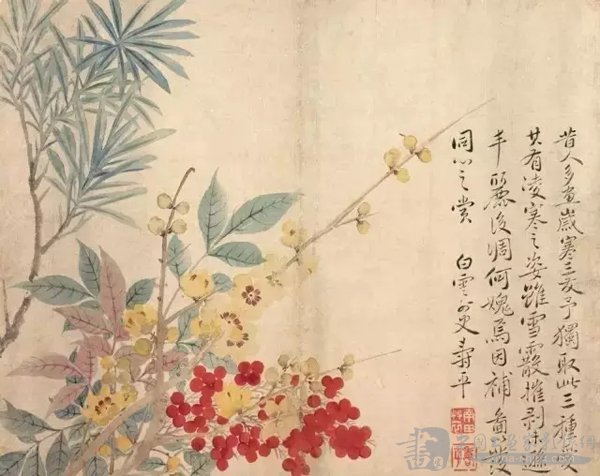 昔人多畫歲寒三友予獨取此三種愛
其有凌寒之姿雖雪霰摧剥
丰麗後凋何媿焉因補啚
同心之賞 白雲外史壽平
書